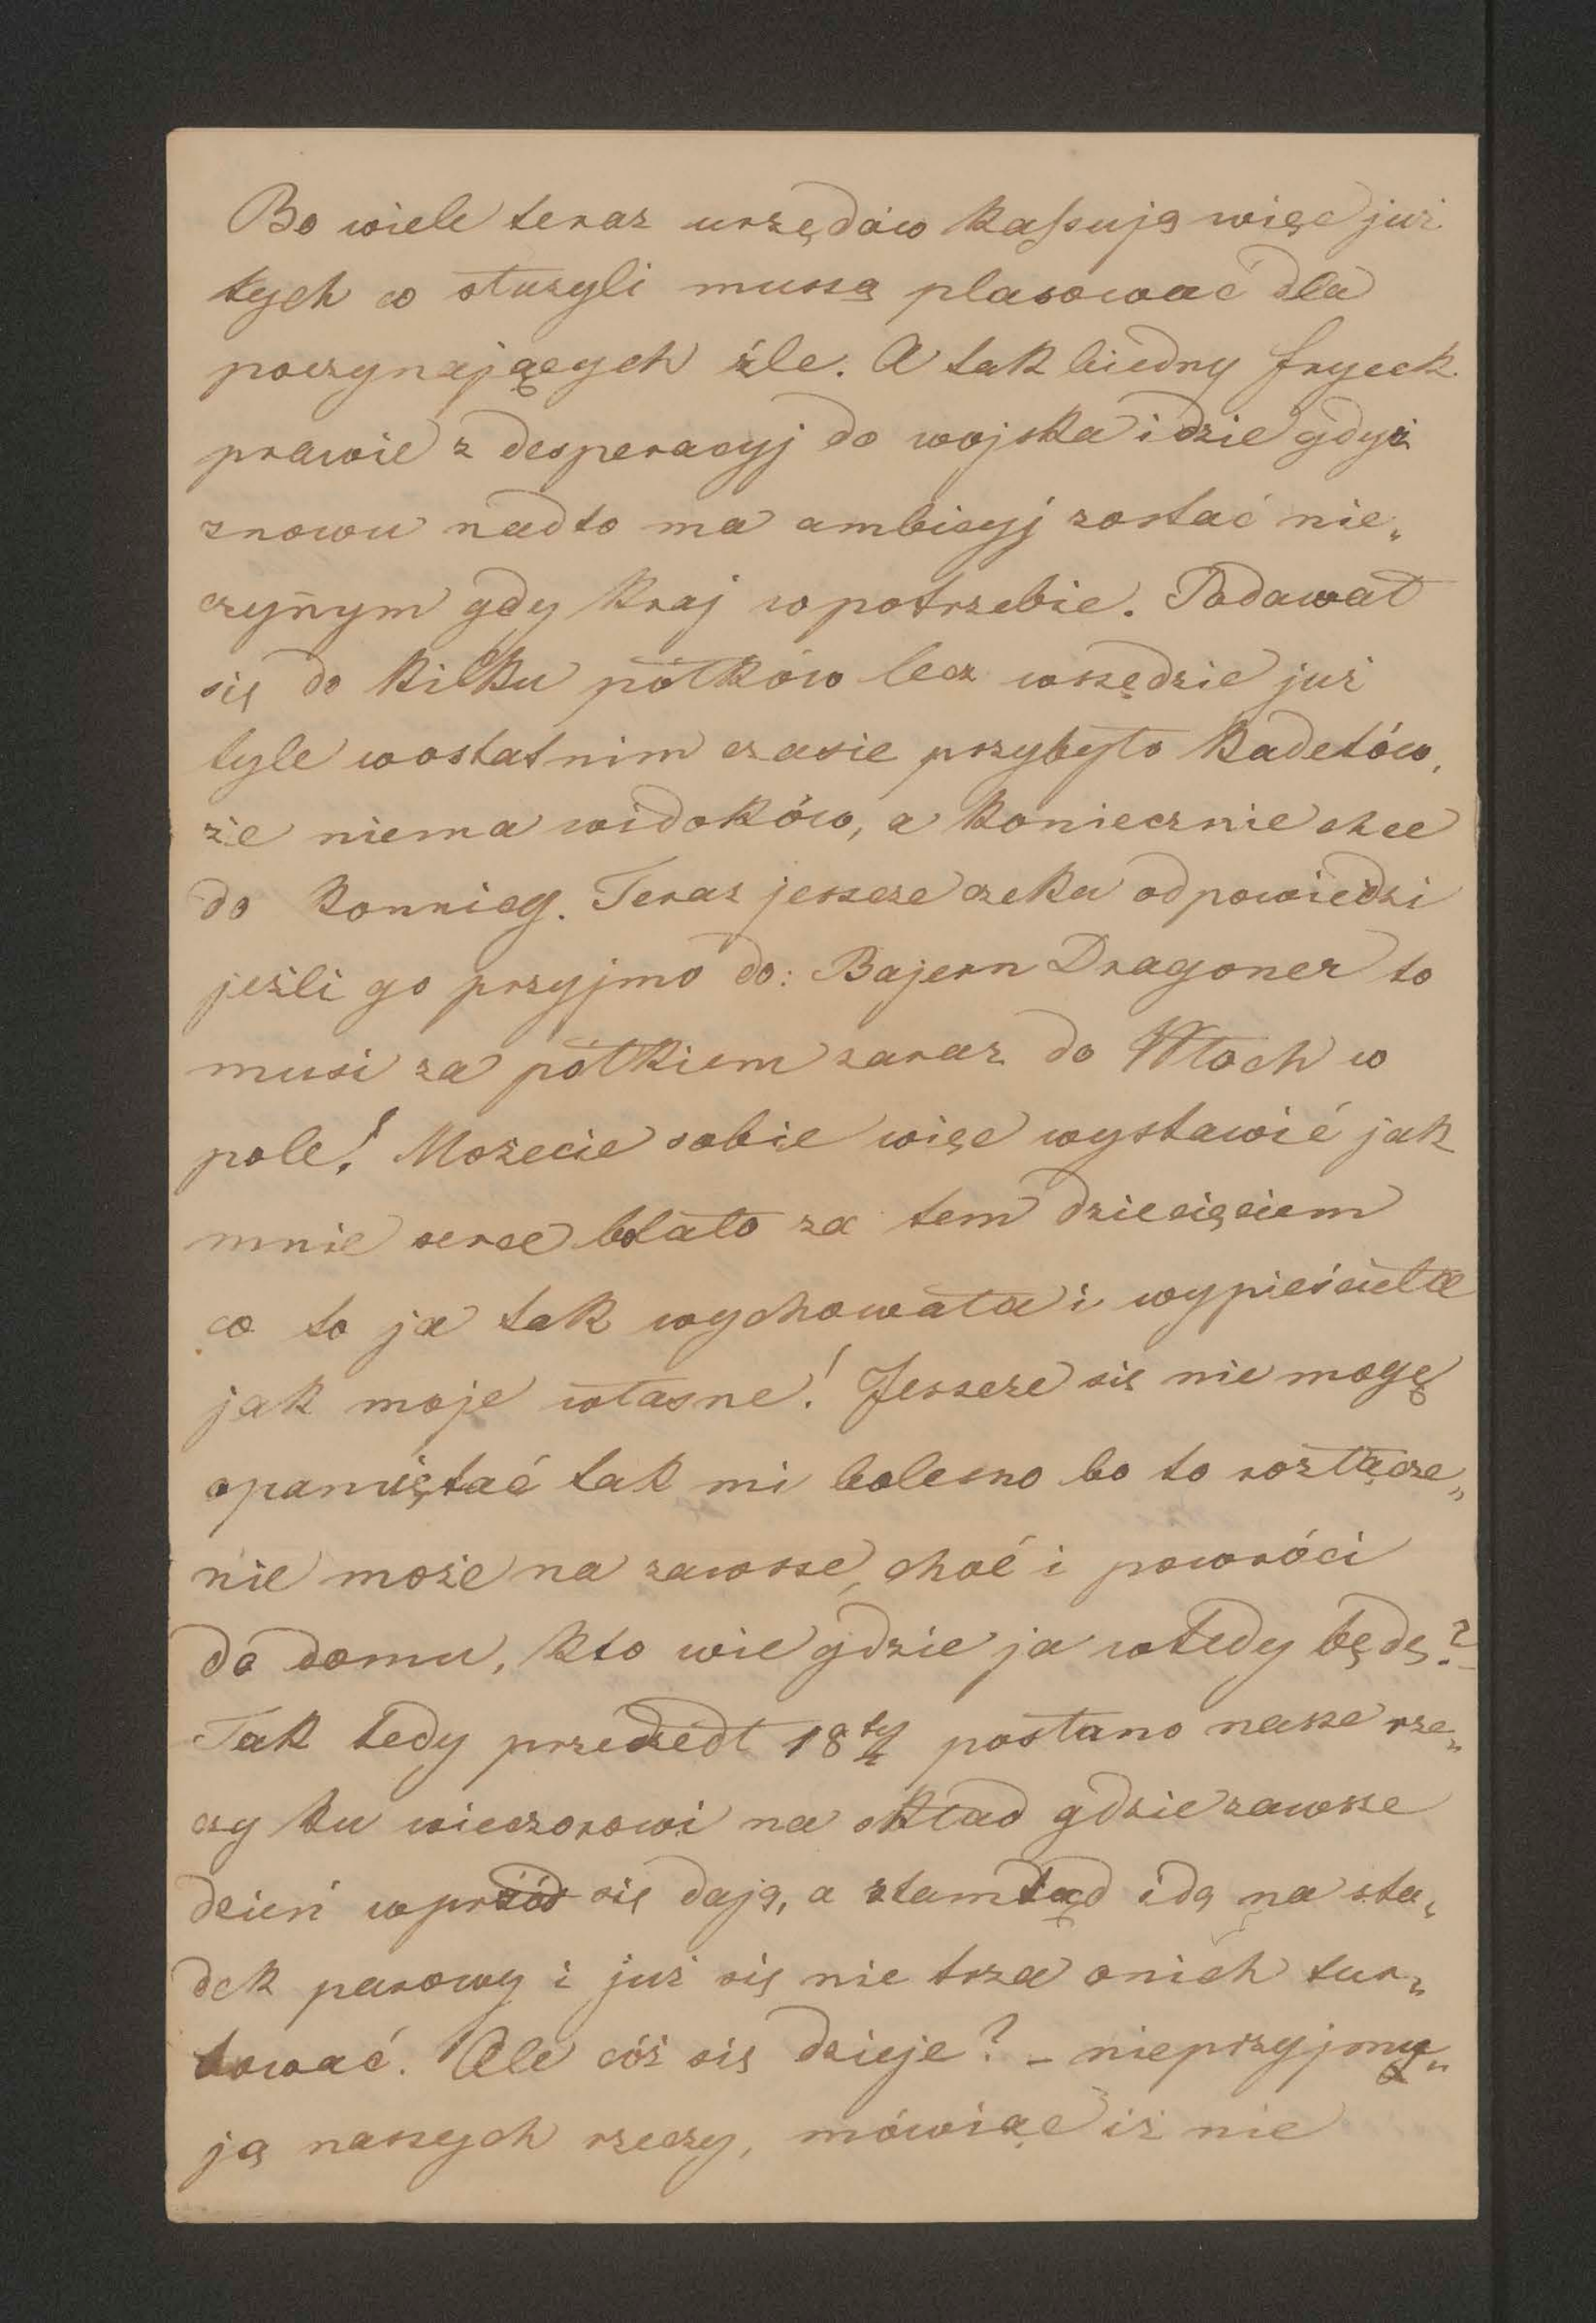 Bo wiele teraz urzędów kassują więc już
tych co służyli muszą plasować dla
poczynających źle. A tak biedny frycek
prawie z desperacyj do wojska idzie gdyż
znowu nadto ma ambicyj zostać nie„
czynym gdy kraj w potrzebie. Podawał
się do kilku półków lecz wszędzie już
tyle w ostatnim czasie przybyło kadetów,
że niema widoków, a koniecznie chce
do konnicy. Teraz jeszcze czeka odpowiedzi
jeźli go przyjmo do: Bajern Dragoner to
musi za półkiem zaraz do Włoch w
pole! Możecie sobie więc wystawić jak
mnie serce bolało za tem dziecięciem
co to ja tak wychowała i wypieściła
jak moje własne! Jeszcze się nie mogę
opamiętać tak mi bolesno bo to rozłącze„
nie może na zawsze, choć i powróci
do domu, kto wie gdzie ja wtedy będę?
Tak tedy przeszedł 18ty posłano nasze rze„
czy ku wieczorowi na skład gdzie zawsze
dzień wprzód się dają, a ztamtąd idą na sta„
dek parowy i już się nie trza o nich tur„
bować. Ale cóż się dzieje? – nieprzyjmu„
ją naszych rzeczy, mówiąc iż nie